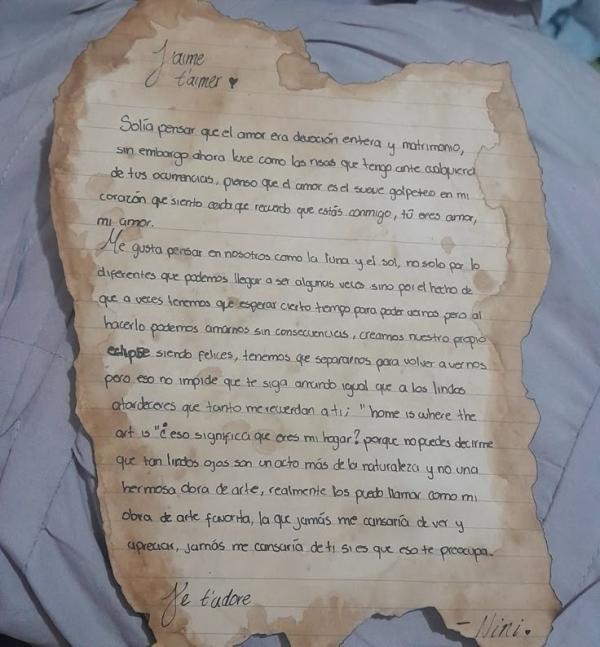 J'aime
t'aimer ♥
Solía pensar que el amor era devoción entera y matrimonio,
sin embargo ahora luce como las risas que tengo ante cualquiera
de tus ocurrencias, pienso que el amor es el suave golpeteo en mi
corazón que siento cada que recuerdo que estás conmigo, tú eres amor,
mi amor.
Me gusta pensar en nosotros como la luna y el sol, no solo por lo
diferentes que podemos llegar a ser algunas veces sino por el hecho de
que a veces tenemos que esperar cierto tiempo para poder vernos pero al
hacerlo podemos amarnos sin consecuencias, creamos nuestro propio
eclipse siendo felices, tenemos que separarnos para volver a vernos
pero eso no impide que te siga amando igual que a los lindos
atardeceres que tanto me recuerdan a ti; "home is where the
art is" ¿eso significa que eres mi hogar? porque no puedes decirme
que tan lindos ojos son un acto más de la naturaleza y no una
hermosa obra de arte, realmente los puedo llamar como mi
obra de arte favorita, la que jamás me cansaría de ver y
apreciar, jamás me cansaría de ti si es que eso te preocupa.
Je t'adore
- Nini.♥